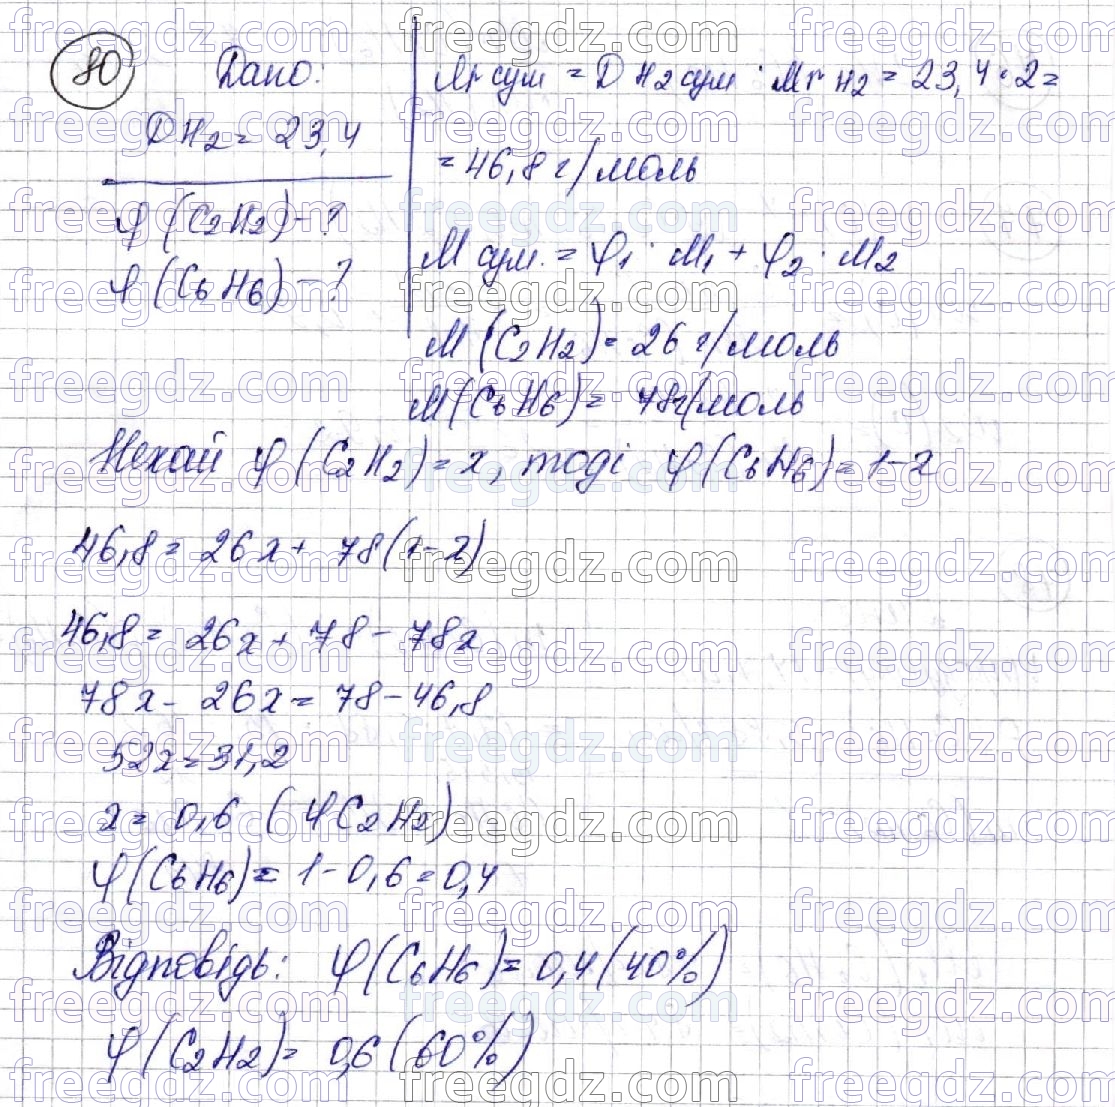 80 Дано:
D H2 = 23,4
φ (C2H2) - ?
φ (C6H6) - ?
Mr сум = D H2 сум · Mr H2 = 23,4 · 2 =
= 46,8 г/моль
M сум. = φ1 · M1 + φ2 · M2
M (C2H2) = 26 г/моль
M (C6H6) = 78 г/моль
Нехай φ (C2H2) = x, тоді φ (C6H6) = 1-x
46,8 = 26x + 78 (1-x)
46,8 = 26x + 78 - 78x
78x - 26x = 78 - 46,8
52x = 31,2
x = 0,6 (φ C2H2)
φ (C6H6) = 1 - 0,6 = 0,4
Відповідь: φ (C6H6) = 0,4 (40%)
φ (C2H2) = 0,6 (60%)
freegdz.com